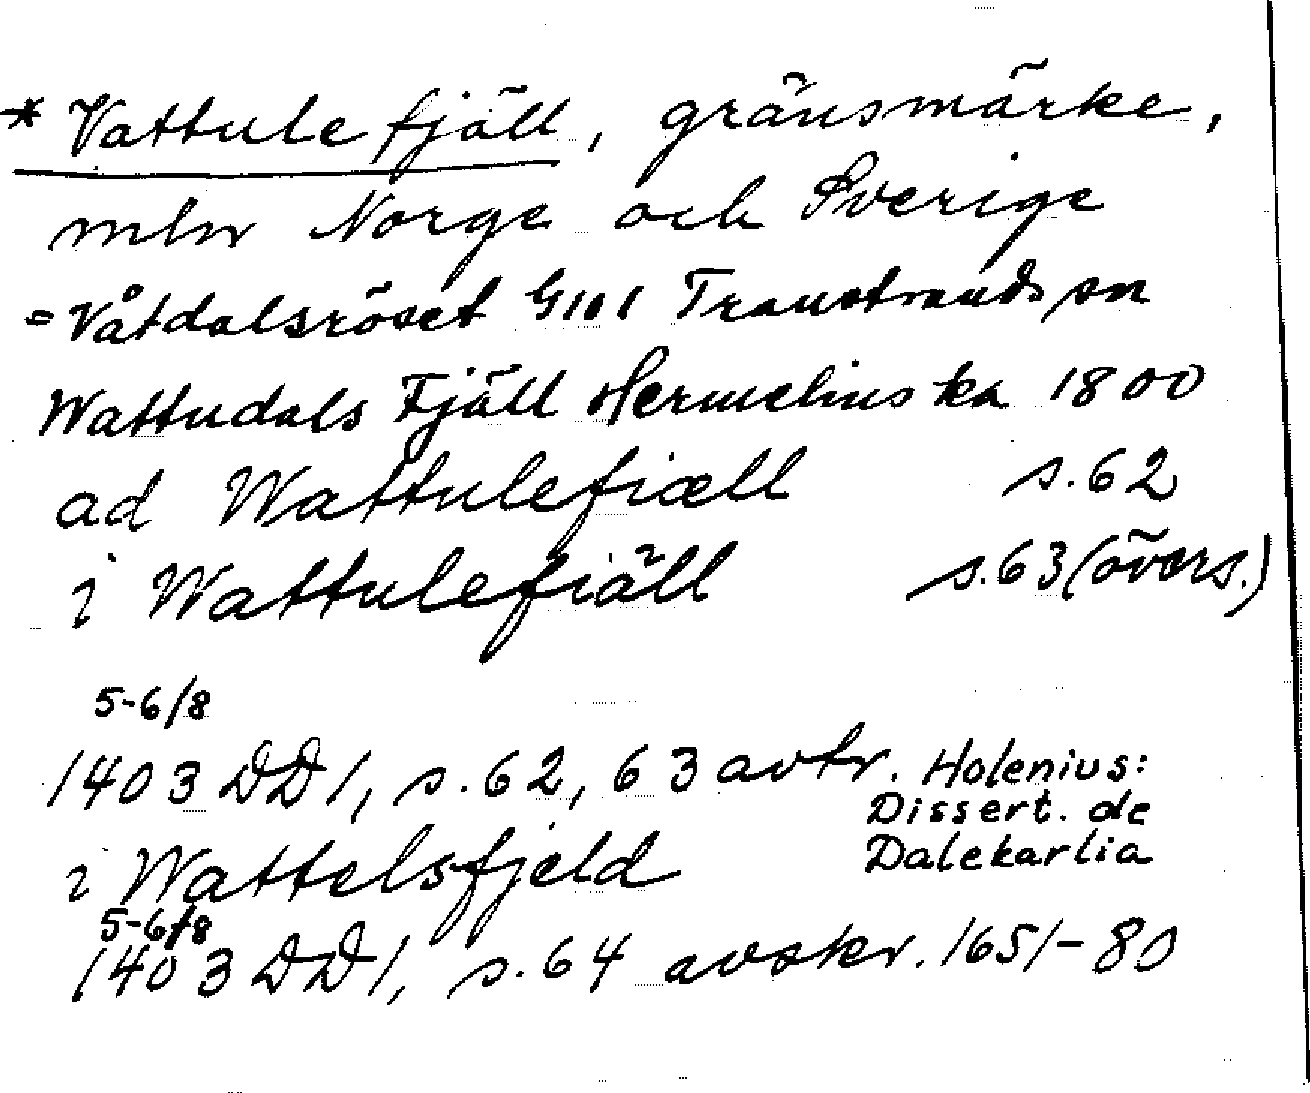 * Vattulefjäll, gränsmärke,
mln Norge och Sverige
= Våtdalsröset G101 Transtrands sn
Wattudals Fjäll Hermelins ka 1800
ad Wattulefiæll s. 62
i Wattulefiäll s. 63 (övers.)
5-6/8
1403 DD1, s. 62, 63 avtr. Holenius:
Dissert. de
Dalekarlia
i Wattelsfjeld
5-6/8
1403 DD1, s. 64 avskr. 1651-80